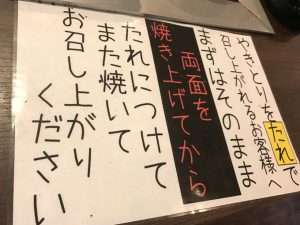 やきとりをたれで
召し上がれるお客様へ
まずはそのまま
両面を
焼き上げてから
たれにつけて
また焼いて
お召し上がり
ください